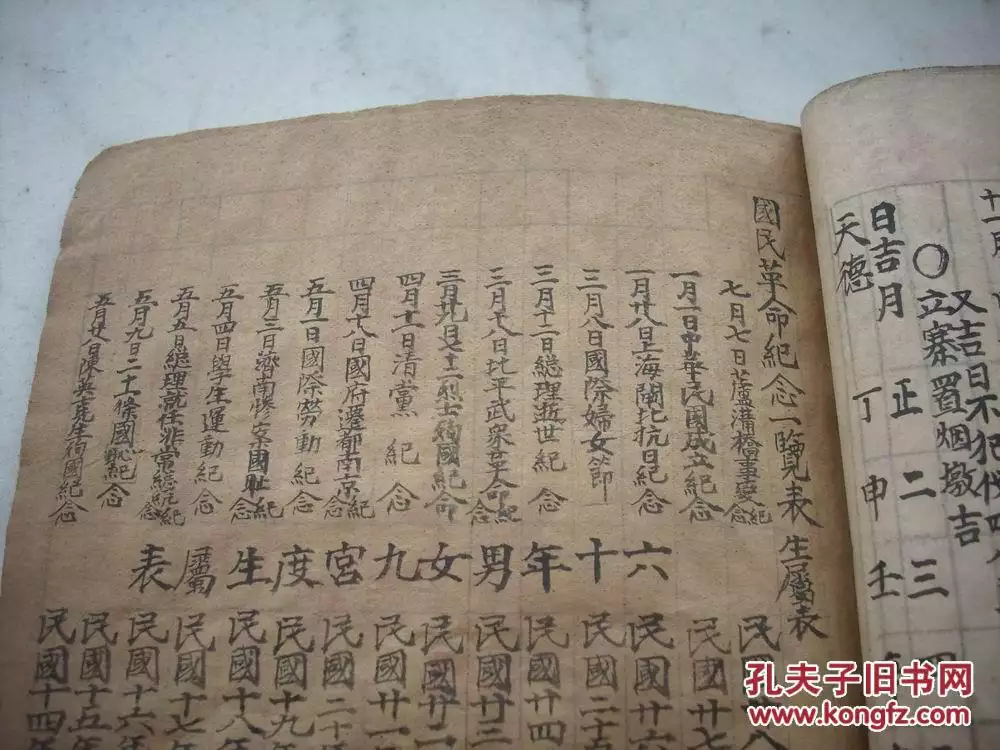 國民革命紀念一覽表 生屬表
七月七日蘆溝橋事變紀念
一月一日中華民國成立紀念
一月廿八日上海閘北抗日紀念
三月八日國際婦女節
三月十二日總理逝世紀念
三月十八日北平武衆革命紀念
三月廿九日七十二烈士殉國紀念
四月十二日清黨紀念
四月十八日國府遷都南京紀念
五月一日國際勞動紀念
五月三日濟南慘案國耻紀念
五月四日學生運動紀念
五月五日總理就任非常總統紀念
五月九日二十一條國恥紀念
五月廿八日陳英士先生殉國紀念
六十年男女九宮度生屬表
民國
民國廿七
民國廿六
民國二十五
民國廿四
民國廿三
民國廿二
民國廿一
民國二十
民國十九
民國十八年
民國十七年
民國十六年
民國十五年
民國十四年
十一月
又吉日不犯
〇立寨置烟墩吉
日吉月 正 二 三 四
天德 丁 申 壬
孔夫子旧书网
www.kongfz.com